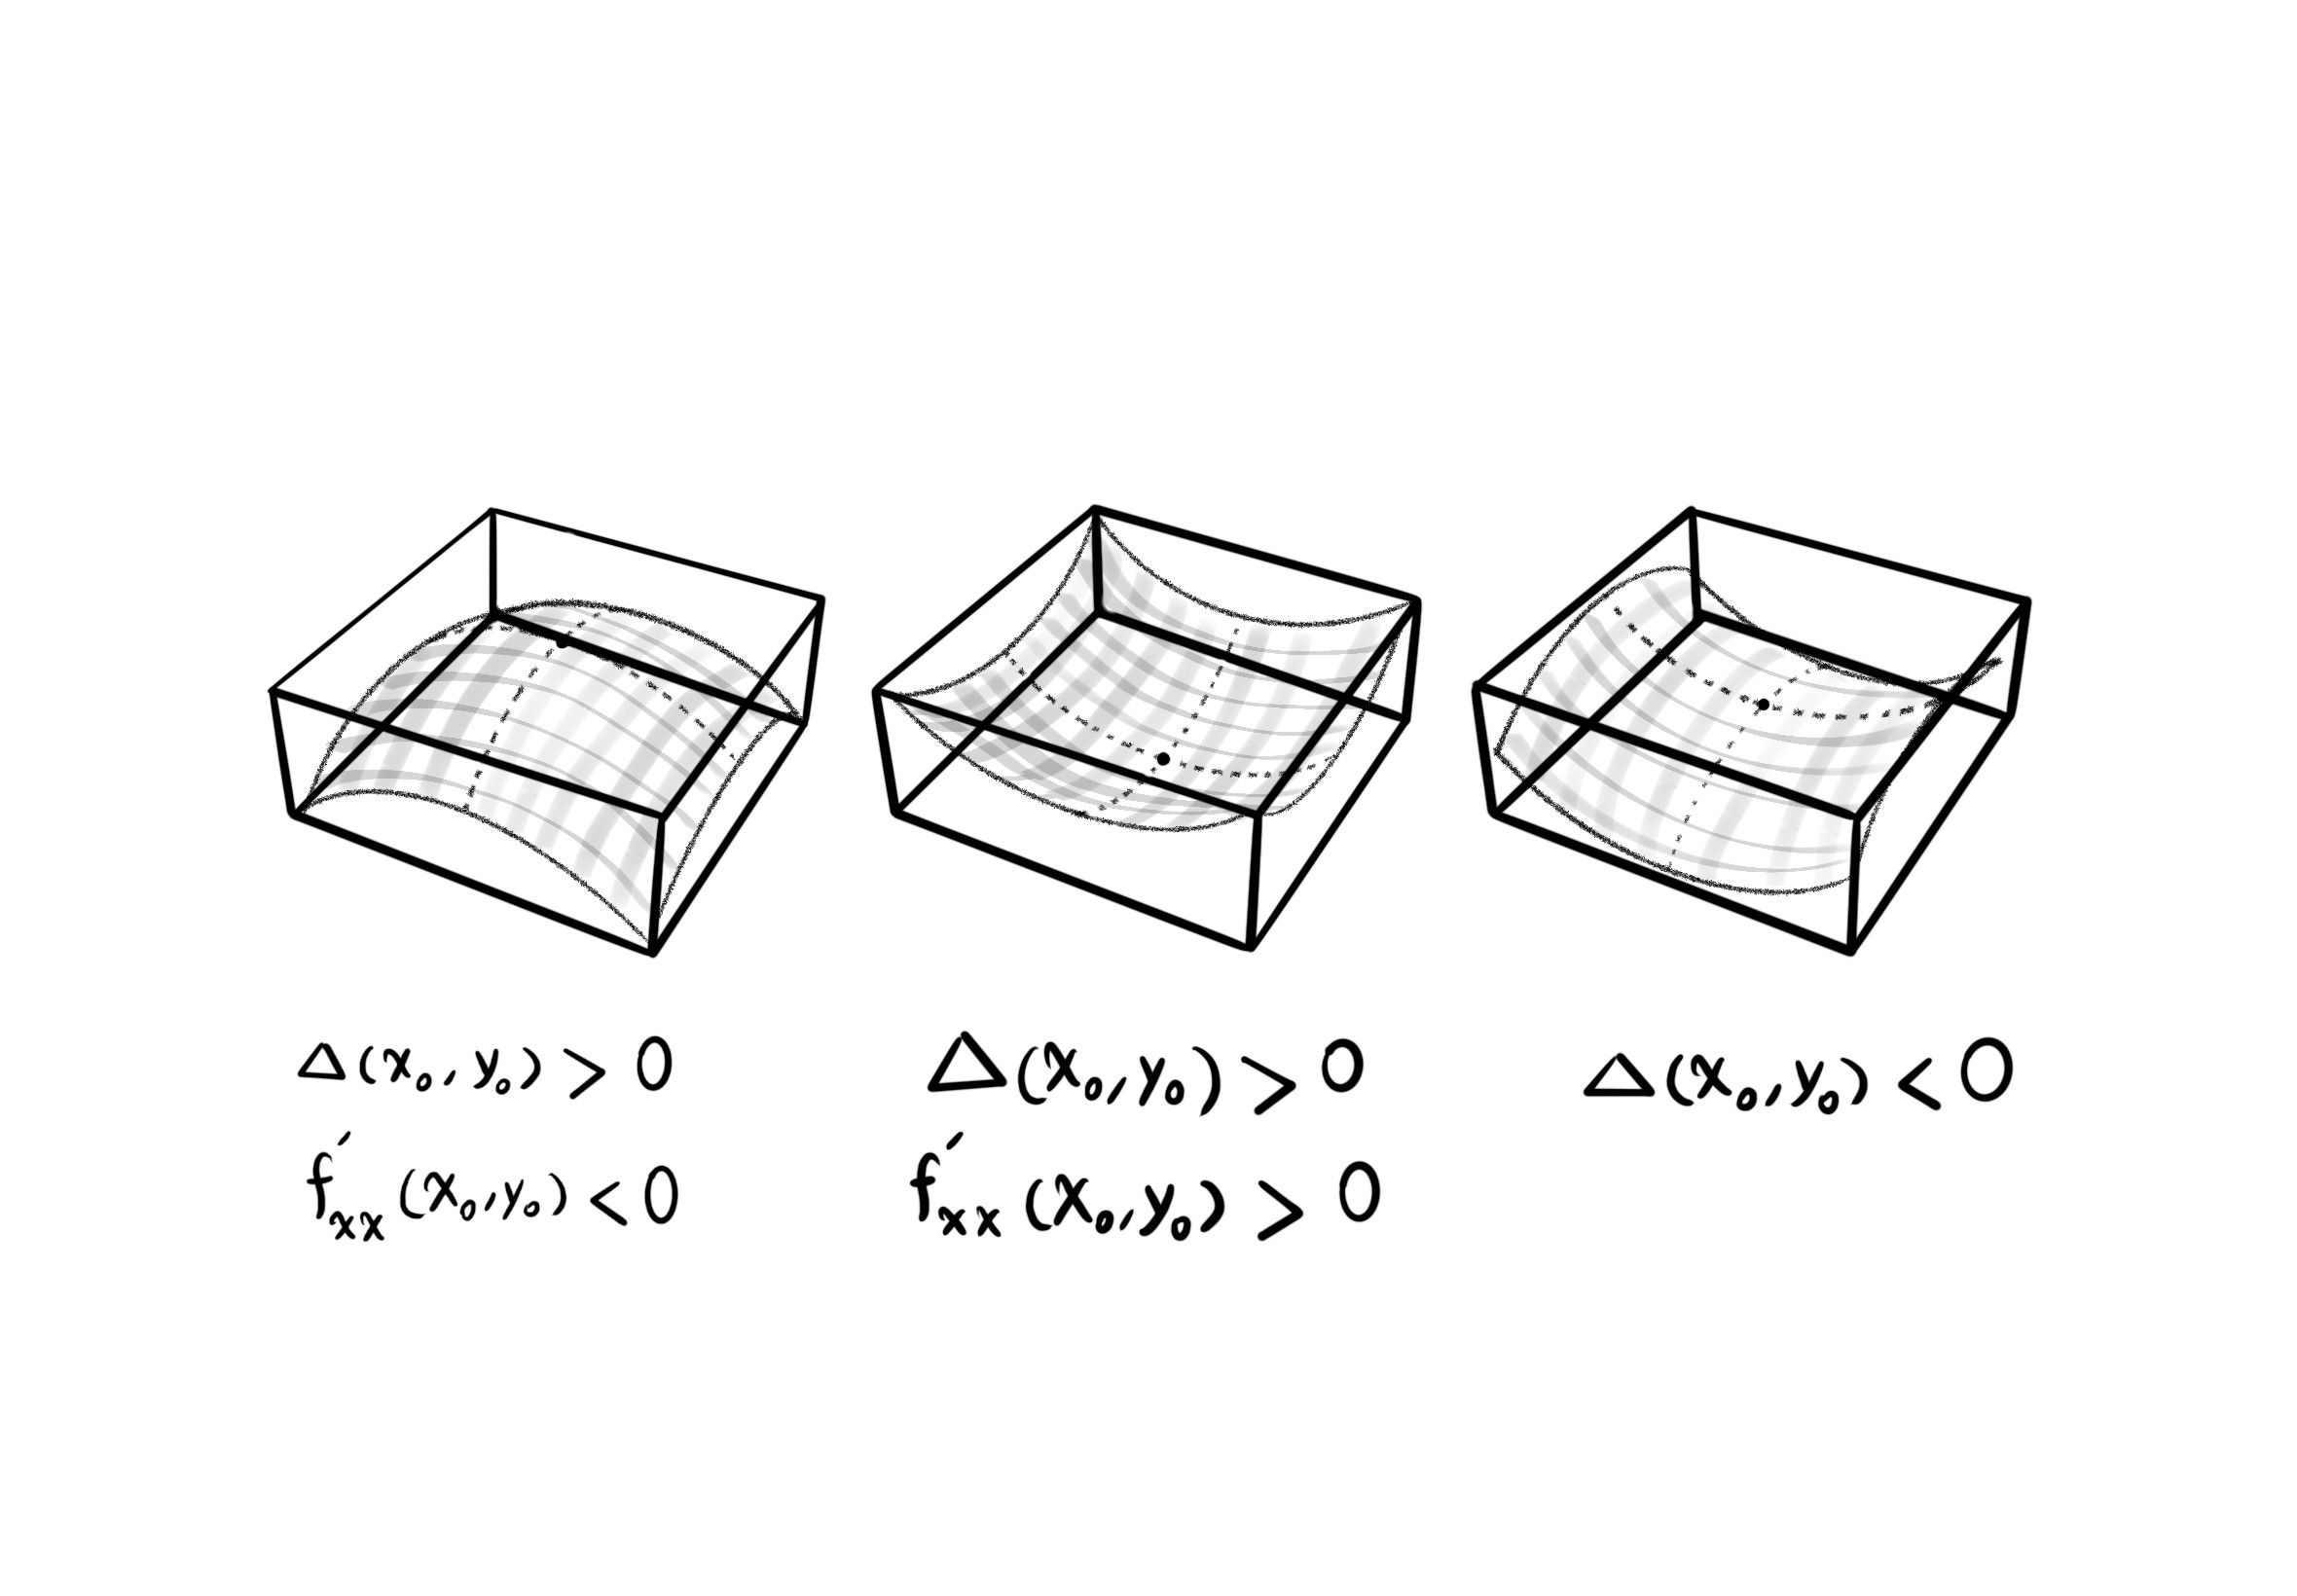 Δ(x₀, y₀) > 0
f′xx (x₀, y₀) < 0
Δ(x₀, y₀) > 0
f′xx (x₀, y₀) > 0
Δ(x₀, y₀) < 0